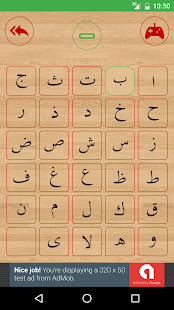 10:50
ا ب ت ث ج
ح خ د ذ ر
ز س ش ص ض
ط ظ ع غ ف
ق ك ل م ن
و ه لا ي
Nice job! You're displaying a 320 x 50
test ad from AdMob.
AdMob by Google